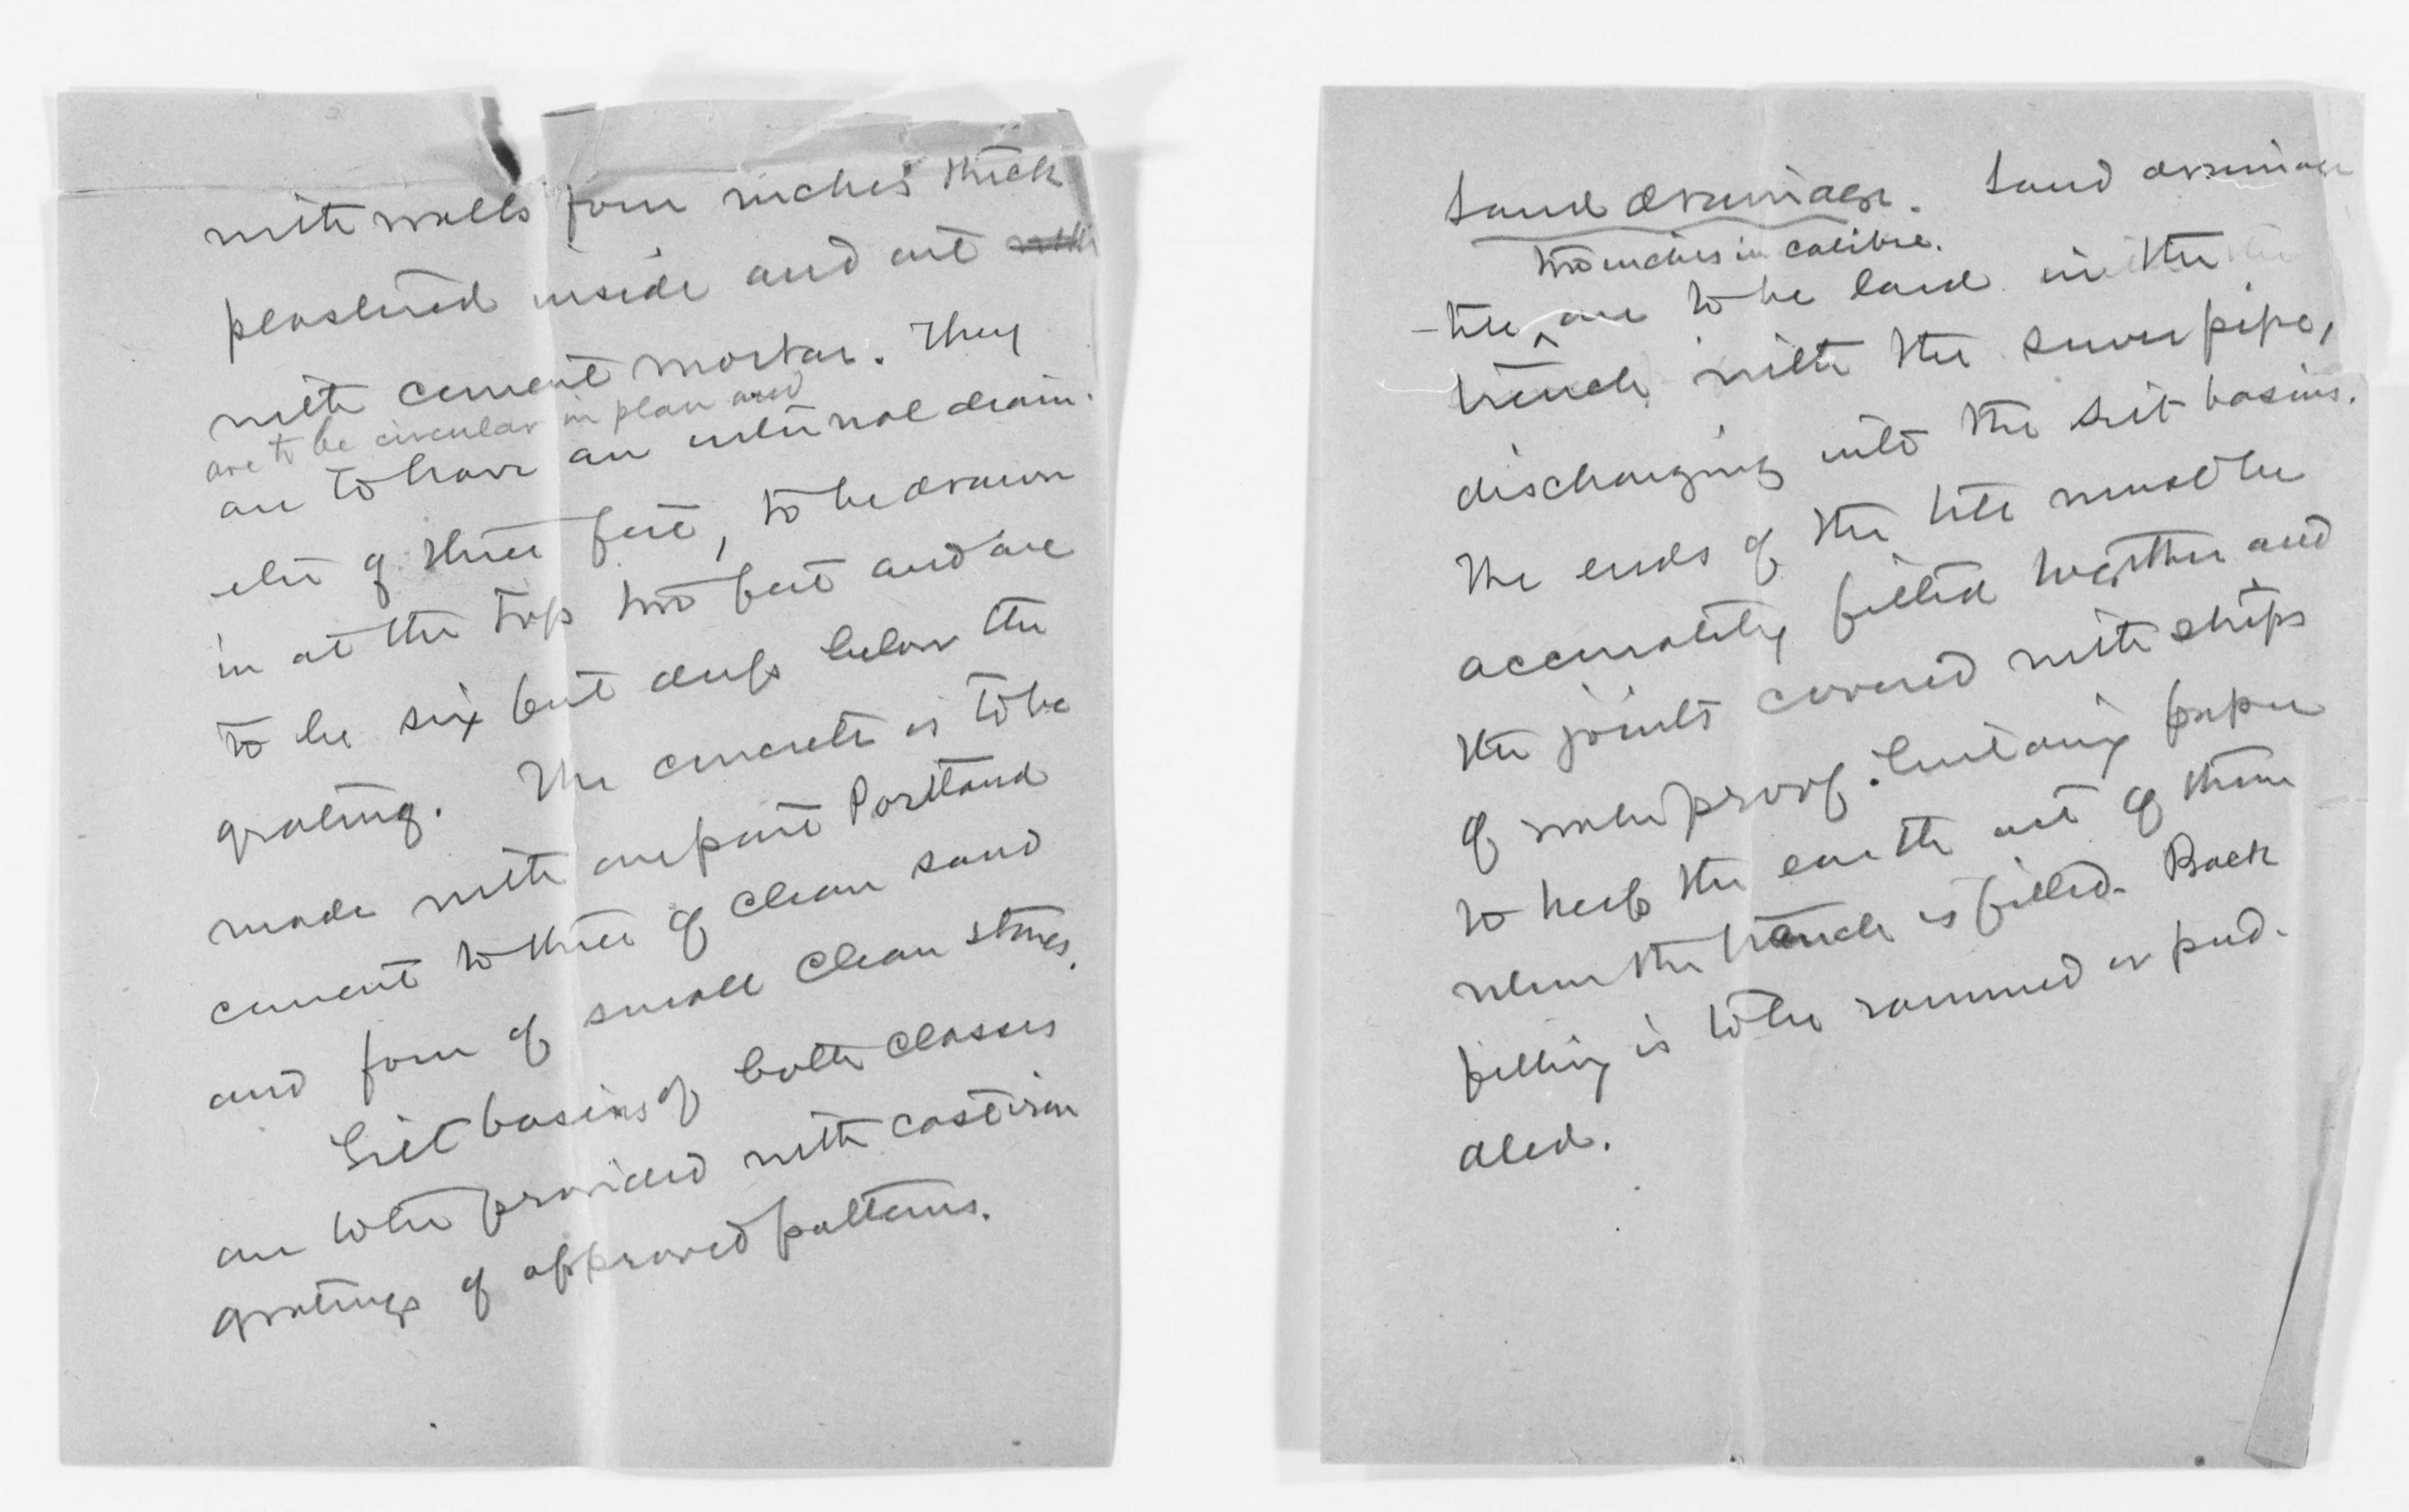 with walls four inches thick
plastered inside and out with
with cement mortar. They
are to be circular in plan and
are to have an internal diam-
eter of three feet, to be drawn
in at the top two feet and are
to be six feet deep below the
grating. The concrete is to be
made with one part Portland
cement to three of clean sand
and four of small clean stones.
Silt basins of both classes
are to be provided with cast iron
gratings of approved patterns.
Land drainage. Land drainage
two inches in calibre.
tile are to be laid in the
trench with the sewer pipe,
discharging into the silt basins.
The ends of the tile must be
accurately fitted together and
the joints covered with strips
of waterproof building paper
to keep the earth out of them
when the trench is filled. Back
filling is to be rammed or pud-
dled.